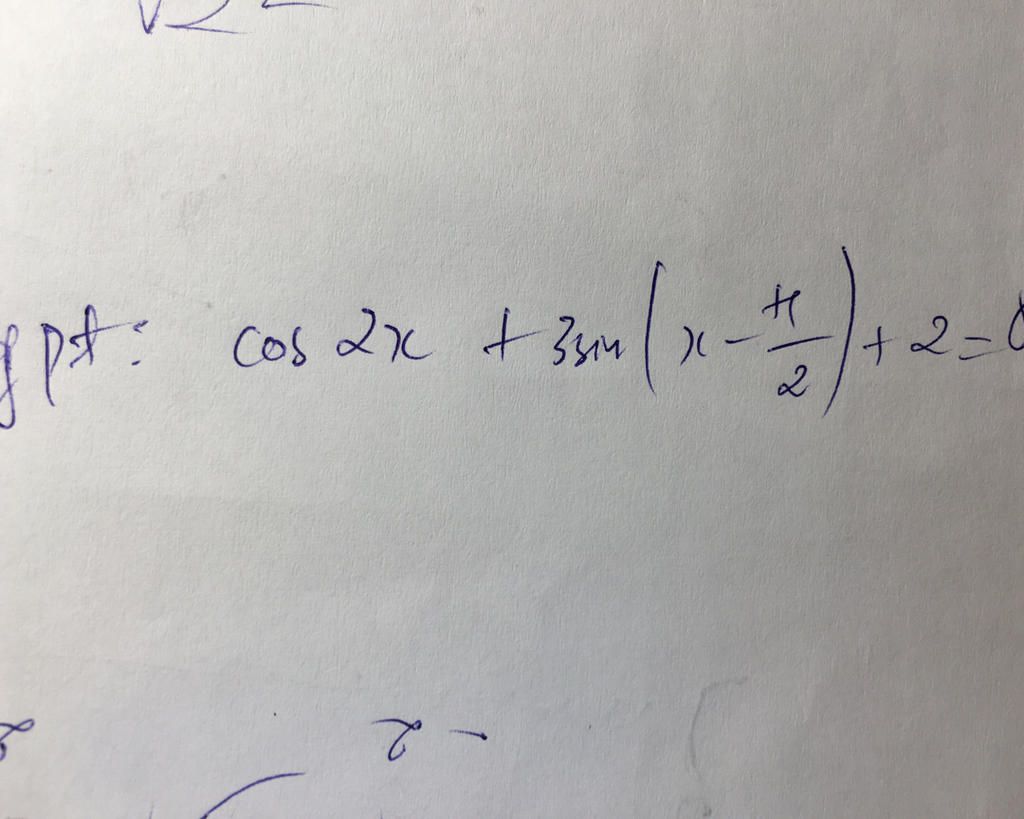 pt: cos 2x + 3sin(x - π/2) + 2 = 0